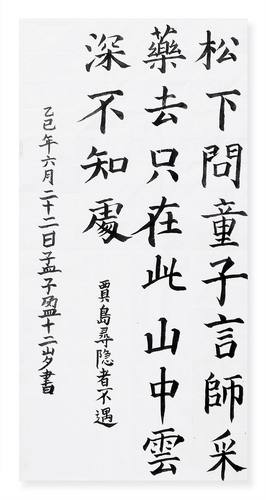 松下問童子言師采
藥去只在此山中雲
深不知處
賈島尋隐者不遇
乙巳年六月二十二日孟子盈十二岁書